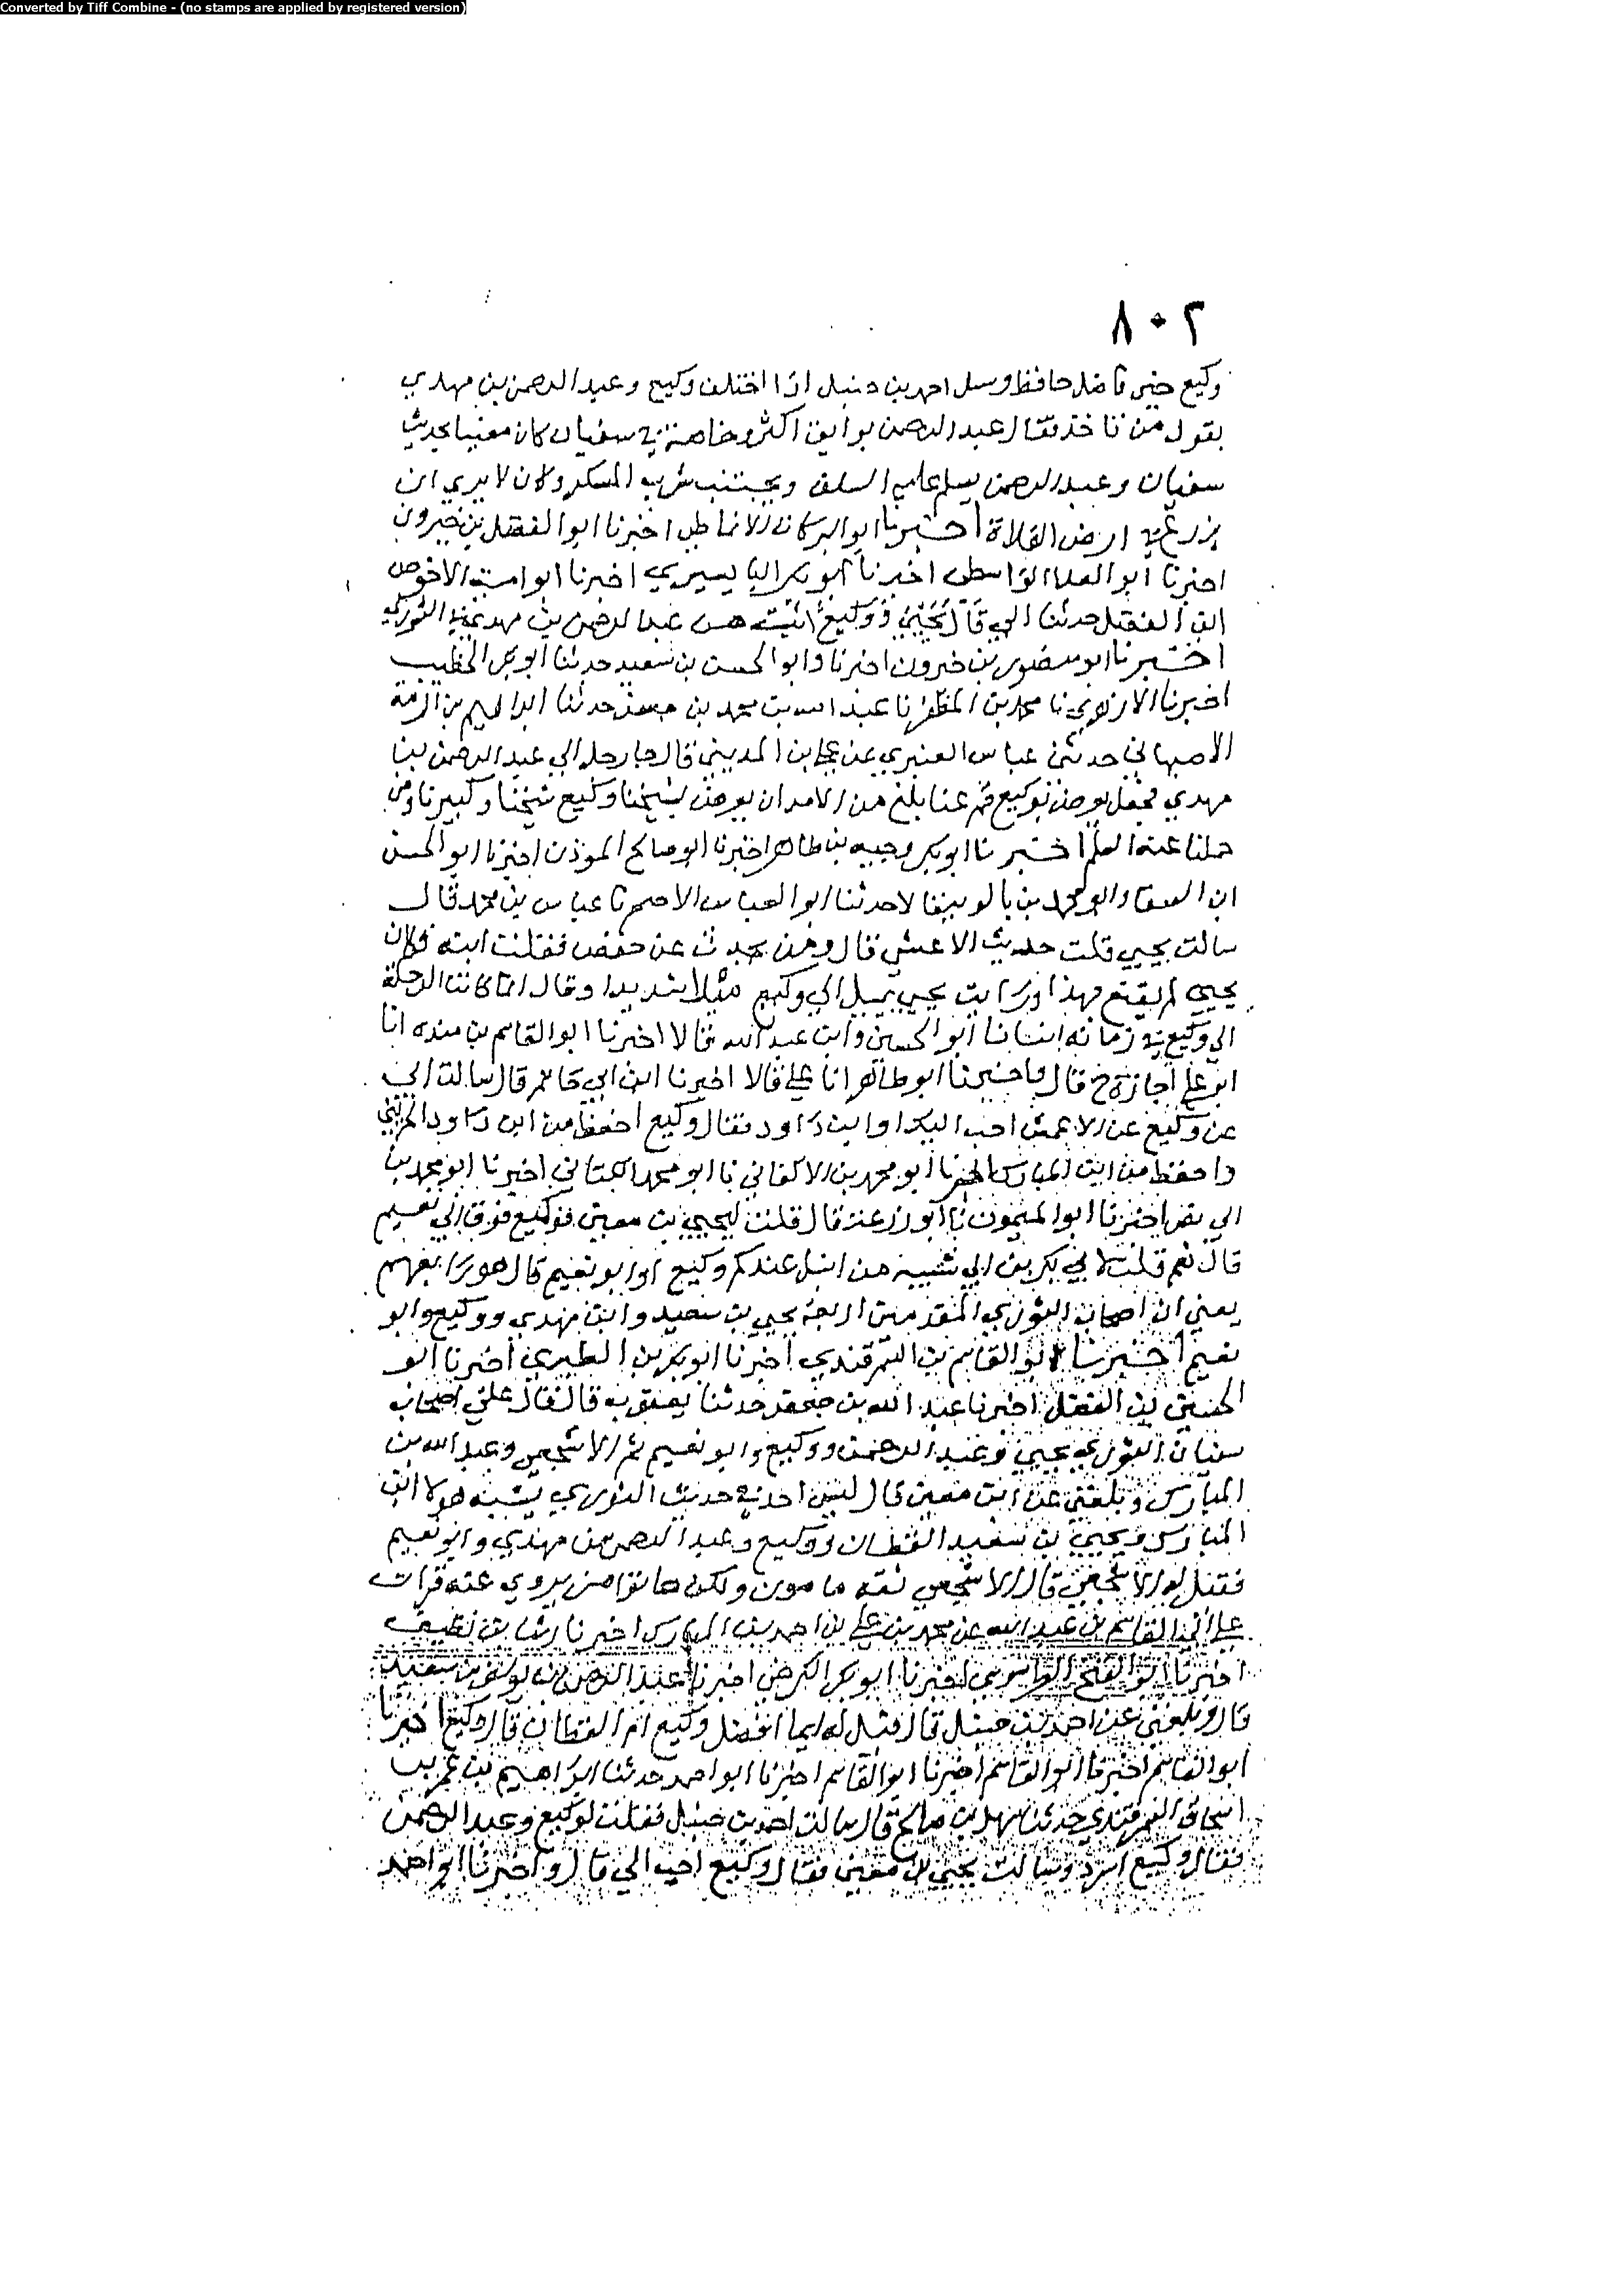 Converted by Tiff Combine - (no stamps are applied by registered version)
٨٠٢
وكيع خير فاضل حافظ وسيل احمد بن حنبل اذا اختلف وكيع وعبد الرحمن بن مهدي
بقول من ناخذ فقال عبد الرحمن يوافق اكثر وخاصة في سفيان كان معنيا بحديث
سفيان وعبد الرحمن يسلم عليه السلف ويجتنب شرب المسكر وكان لا يري ان
يزرع في ارض الفلاة اخبرنا ابو البركات الانماطي اخبرنا ابو الفضل بن خيرون
اخبرنا ابو العلا الواسطي اخبرنا ابو بكر البابسيري اخبرنا ابو امية الاحوص
ابن الفضل حدثنا ابي قال يحيي ووكيع اثبت من عبد الرحمن بن مهدي في الثوري
اخبرنا ابو منصور بن خيرون اخبرنا وابو الحسن بن سعيد حدثنا ابو بكر الخطيب
اخبرنا نا محمد بن المظفر نا عبد الله بن محمد بن جعفر حدثنا ابراهيم بن
الاصبهاني حدثني عباس العنبري عن علي بن المديني قال جا رجل الي عبد الرحمن بن
مهدي فجعل يعرض بوكيع قم عنا بلغ من الامر ان يعرض بشيخنا وكيع شيخنا وكبيرنا ومن
حملنا عنه العلم اخبرنا ابو بكر وجيه بن طاهر اخبرنا ابو صالح الموذن اخبرنا ابو الحسن
ابن السقا وابو محمد بن بالويه قالا حدثنا ابو العباس الاصم نا عباس بن محمد قال
سالت يحيي قلت حديث الاعمش قال ومن يحدث عن حفص فقلت ابنه فكان
يحيي لم يقنع بهذا ورايت يحيي يميل الي وكيع ميلا شديدا وقال انما كانت الرحلة
الي وكيع في زمانه انبانا ابو الحسين وابو عبد الله قالا اخبرنا ابو القاسم بن منده انا
ابو علي اجازة ح قال واخبرنا ابو طاهر انا علي قالا اخبرنا ابن ابي حاتم قال سالت ابي
عن وكيع عن الاعمش احب اليك او ابن داود فقال وكيع احفظ من ابن داود الخريبي
واحفظ من ابن المبارك اخبرنا ابو محمد بن الاكفاني نا ابو محمد الكتاني اخبرنا ابو محمد بن
ابي نصر اخبرنا ابو الميمون نا ابو زرعة قال قلت ليحيي بن معين فوكيع فوق ابي نعيم
قال نعم قلت لابي بكر بن ابي شيبة من انبل عندكم وكيع او ابو نعيم قال هو رابعهم
يعني ان اصحاب الثوري المتقدمين اربعة يحيي بن سعيد وابن مهدي ووكيع وابو
نعيم اخبرنا ابو القاسم بن السمرقندي اخبرنا ابو بكر بن الطبري اخبرنا ابو
الحسين بن الفضل اخبرنا عبد الله بن جعفر حدثنا يعقوب قال قال علي اصحاب
سفيان الثوري يحيي وعبد الرحمن ووكيع وابو نعيم ثم الاشجعي وعبد الله بن
المبارك وبلغني عن ابن معين قال ليس احد في حديث الثوري يشبه هولا ابن
المبارك ويحيي بن سعيد القطان ووكيع وعبد الرحمن بن مهدي وابو نعيم
فقيل له الاشجعي قال الاشجعي ثقه مامون ولكن هاتوا من يروي عنه قرات
علي ابي القاسم بن عبد الله عن محمد بن علي بن احمد بن المبارك اخبرنا رشا بن نظيف
اخبرنا ابو الفتح الطرسوسي اخبرنا ابو بكر الكرجي اخبرنا عبد الرحمن بن يوسف بن سعيد
قال وبلغني عن احمد بن حنبل قال قيل له ايما افضل وكيع ام القطان قال وكيع اخبرنا
ابو القاسم اخبرنا ابو القاسم اخبرنا ابو القاسم اخبرنا ابو احمد حدثنا ابراهيم بن
اسحاق السمرقندي حدثنا سهل بن صالح قال سالت احمد بن حنبل فقلت لوكيع وعبد الرحمن
فقال وكيع اسرد وسالت يحيي بن معين فقال وكيع احب الي قال واخبرنا ابو احمد